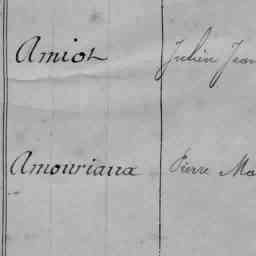 Amiot Julien Jean
Amouriaux Pierre Ma